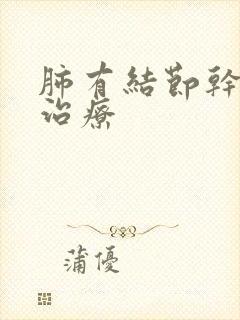 肺有結節幹
治療
蒲優